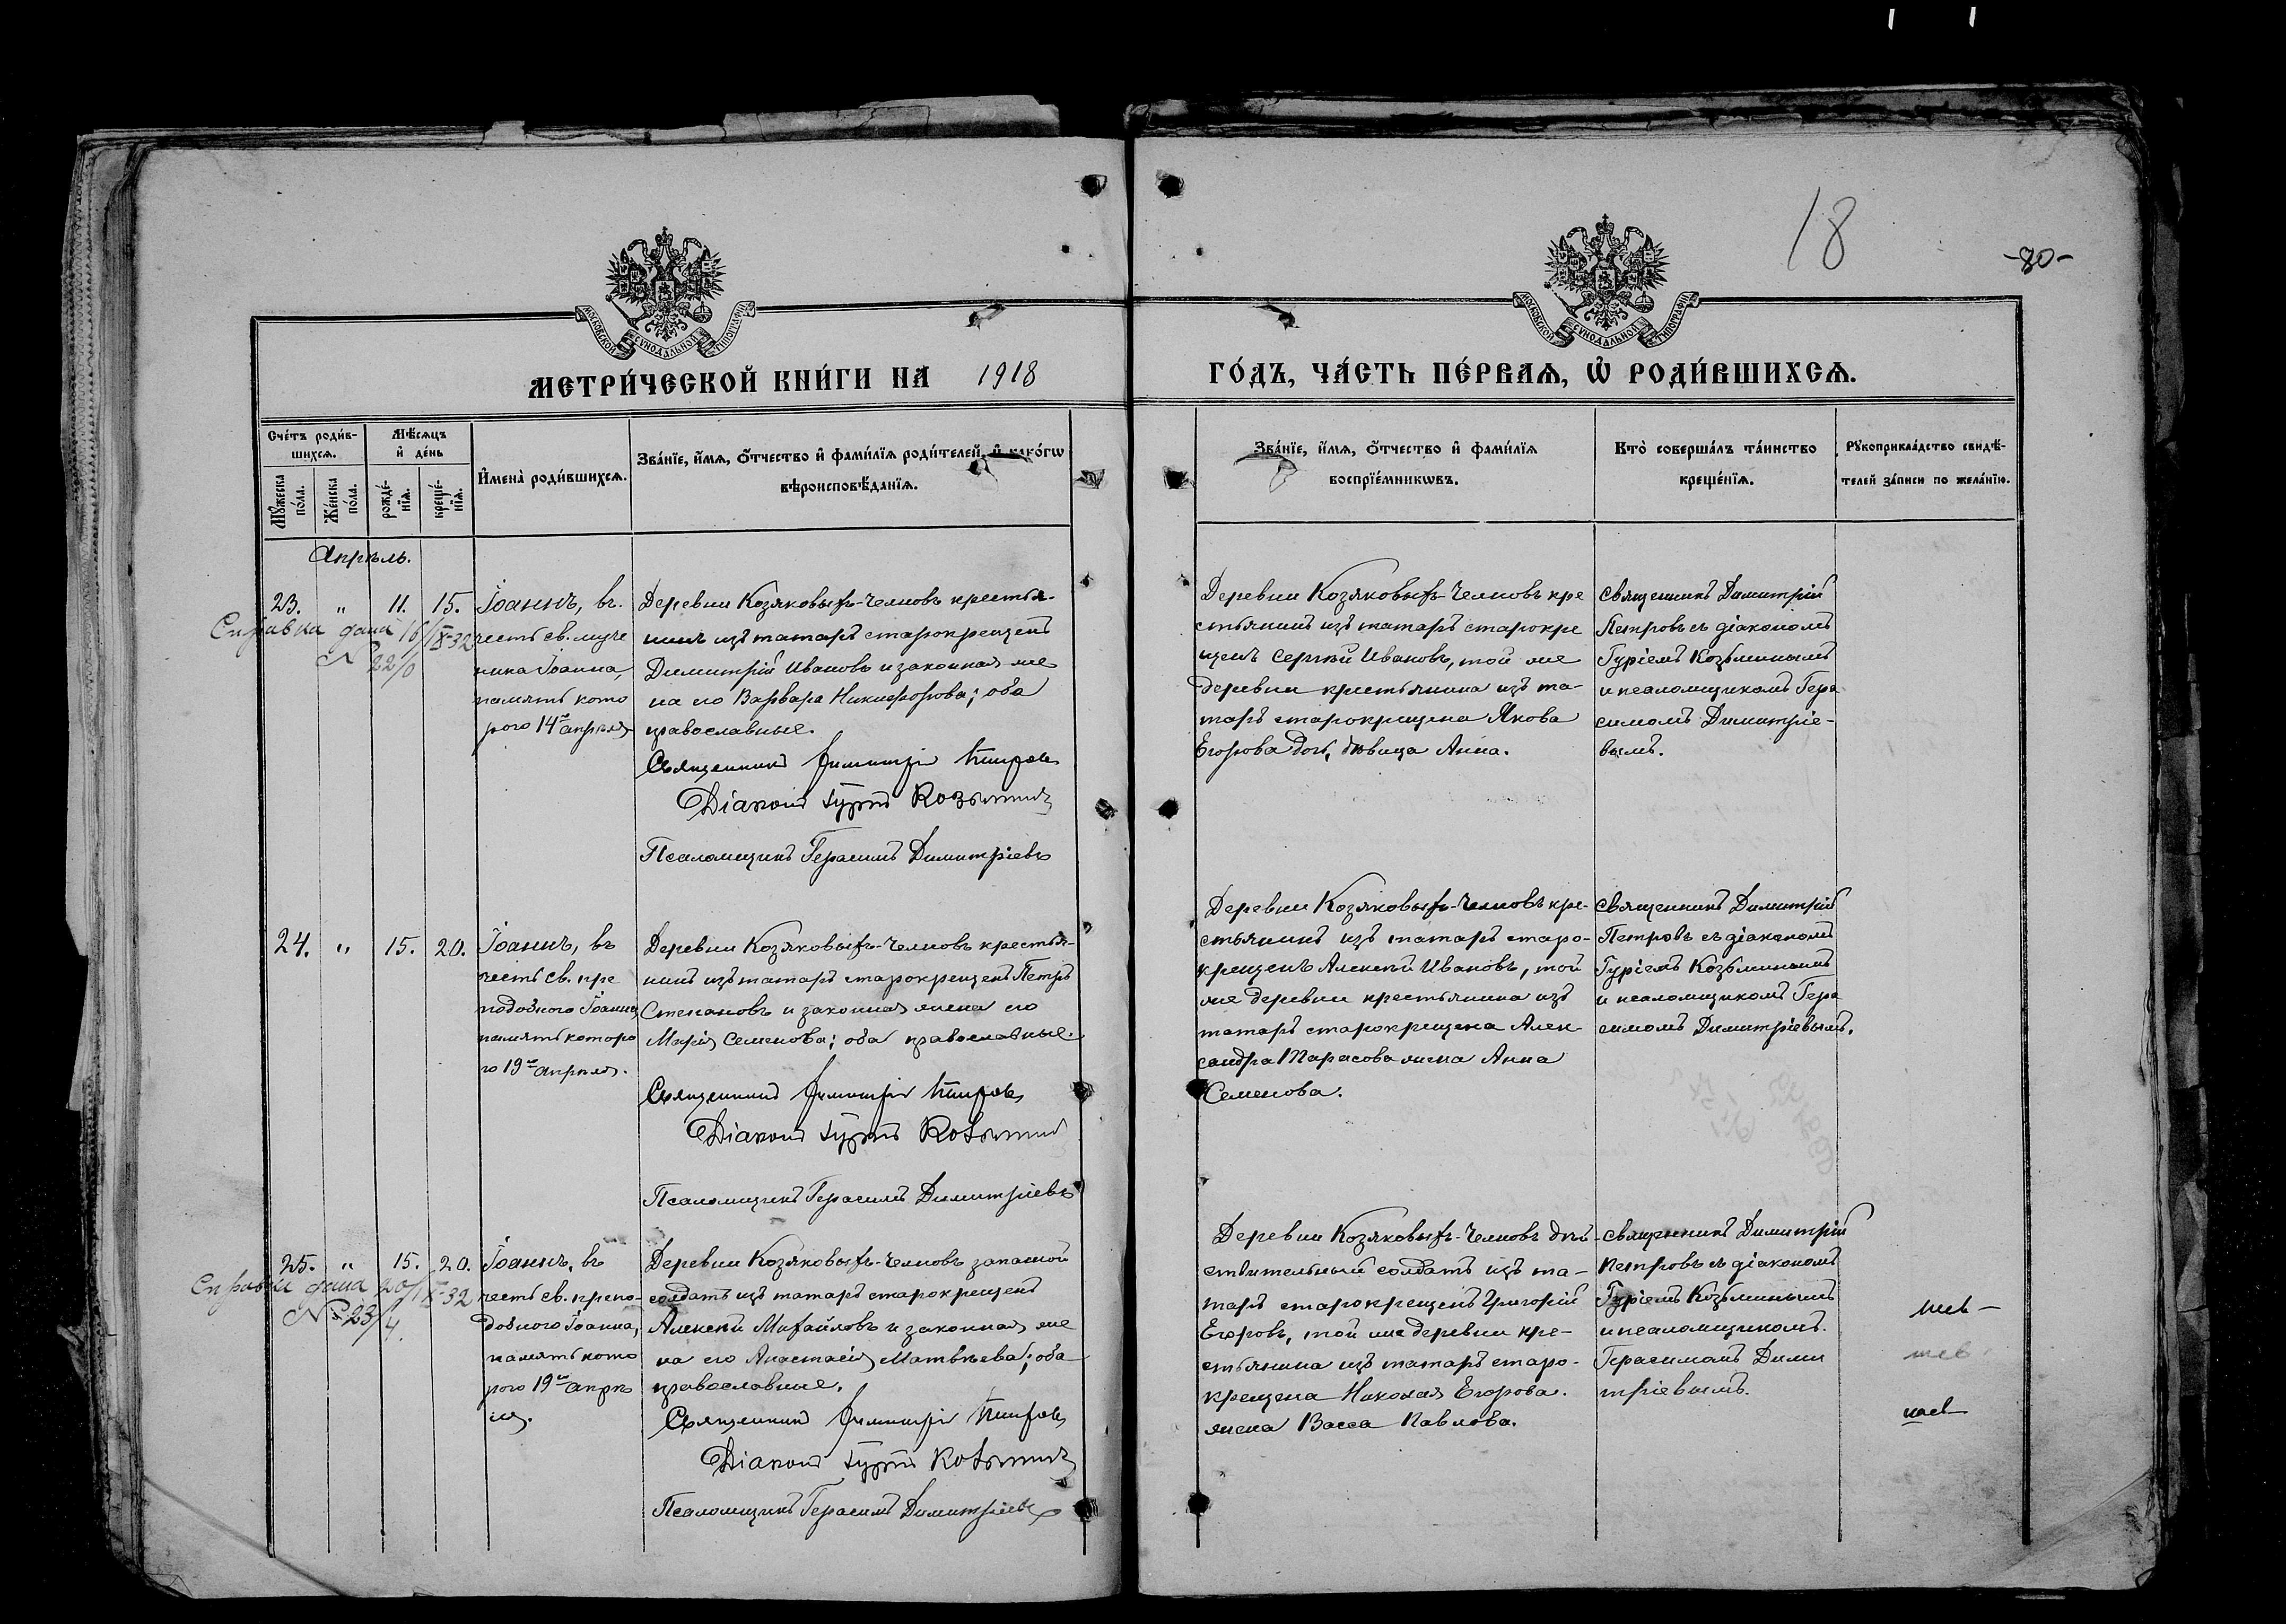 18
-80-
МОСКОВСКОЙ СѴНОДАЛЬНОЙ ТИПОГРАФІИ
МОСКОВСКОЙ СѴНОДАЛЬНОЙ ТИПОГРАФІИ
МЕТРИ́ЧЕСКОЙ КНИ́ГИ НА 1918
ГО́ДЪ, ЧА́СТЬ ПЕ́РВАѦ, Ѡ҆ РОДИ́ВШИХСѦ.
Сче́тъ роди́в-
шихсѧ.
Мѣ́сѧцъ
и҆ де́нь
Мꙋ́жеска
по́ла.
Же́нска
по́ла.
рожде́-
нїѧ.
креще́-
нїѧ.
И҆мена̀ роди́вшихсѧ.
Зва́нїе, и҆́мѧ, ѻ҆́тчество и҆ фами́лїѧ роди́телей, и҆ како́гѡ
вѣроисповѣ́данїѧ.
Зва́нїе, и҆́мѧ, ѻ҆́тчество и҆ фами́лїѧ
воспрїе́мникѡвъ.
Кто̀ соверша́лъ та́инство
креще́нїѧ.
Рꙋкоприкла́дство свидѣ́-
телей за́писи по жела́нїю.
Апрѣль.
23. " 11. 15.
Справка дана 16/X-32
№ 22/0
Іоаннъ, въ
честь св. муче
ника Іоанна,
память кото
раго 14го апрѣля
Деревни Козяковыхъ-Челновъ крестья-
нинъ изъ татаръ старокрещенъ
Димитрій Ивановъ и законная же
на его Варвара Никифорова; оба
православные.
Священникъ Димитрій Петровъ
Діаконъ Гурій Козьминъ
Псаломщикъ Герасимъ Димитріевъ
Деревни Козяковыхъ-Челновъ кре
стьянинъ изъ татаръ старокре
щенъ Сергѣй Ивановъ, той же
деревни крестьянина изъ та-
таръ старокрещена Якова
Егорова дочь, дѣвица Анна.
Священникъ Димитрій
Петровъ съ діакономъ
Гуріемъ Козьминымъ
и псаломщикомъ Гера
симомъ Димитріе-
вымъ.
24. " 15. 20.
Іоаннъ, въ
честь св. пре
подобного Іоанна,
память которо
го 19го апрѣля.
Деревни Козяковыхъ-Челновъ крестья-
нинъ изъ татаръ старокрещенъ Петръ
Степановъ и законная жена его
Марія Семенова; оба православные.
Священникъ Димитрій Петровъ
Діаконъ Гурій Козьминъ
Псаломщикъ Герасимъ Димитріевъ
Деревни Козяковыхъ-Челновъ кре-
стьянинъ изъ татаръ старо-
крещенъ Алексѣй Ивановъ, той
же деревни крестьянина изъ
татаръ старокрещена Алек
сандра Тарасова жена Анна
Семенова.
Священникъ Димитрій
Петровъ съ діакономъ
Гуріемъ Козьминымъ
и псаломщикомъ Гера
симомъ Димитріевымъ.
25. " 15. 20.
Справка дана 20/X-32
№ 23/4.
Іоаннъ, въ
честь св. препо-
добного Іоанна,
память кото
раго 19го апрѣ
ля.
Деревни Козяковыхъ-Челновъ запасной
солдатъ изъ татаръ старокрещенъ
Алексѣй Михайловъ и законная же
на его Анастасія Матвѣева; оба
православные.
Священникъ Димитрій Петровъ
Діаконъ Гурій Козьминъ
Псаломщикъ Герасимъ Димитріевъ
Деревни Козяковыхъ-Челновъ дѣй-
ствительный солдатъ изъ та-
таръ старокрещенъ Григорій
Егоровъ, той же деревни кре-
стьянина изъ татаръ старо-
крещена Николая Егорова
жена Васса Павлова.
Священникъ Димитрій
Петровъ съ діакономъ
Гуріемъ Козьминымъ
и псаломщикомъ
Герасимомъ Дими
тріевымъ.